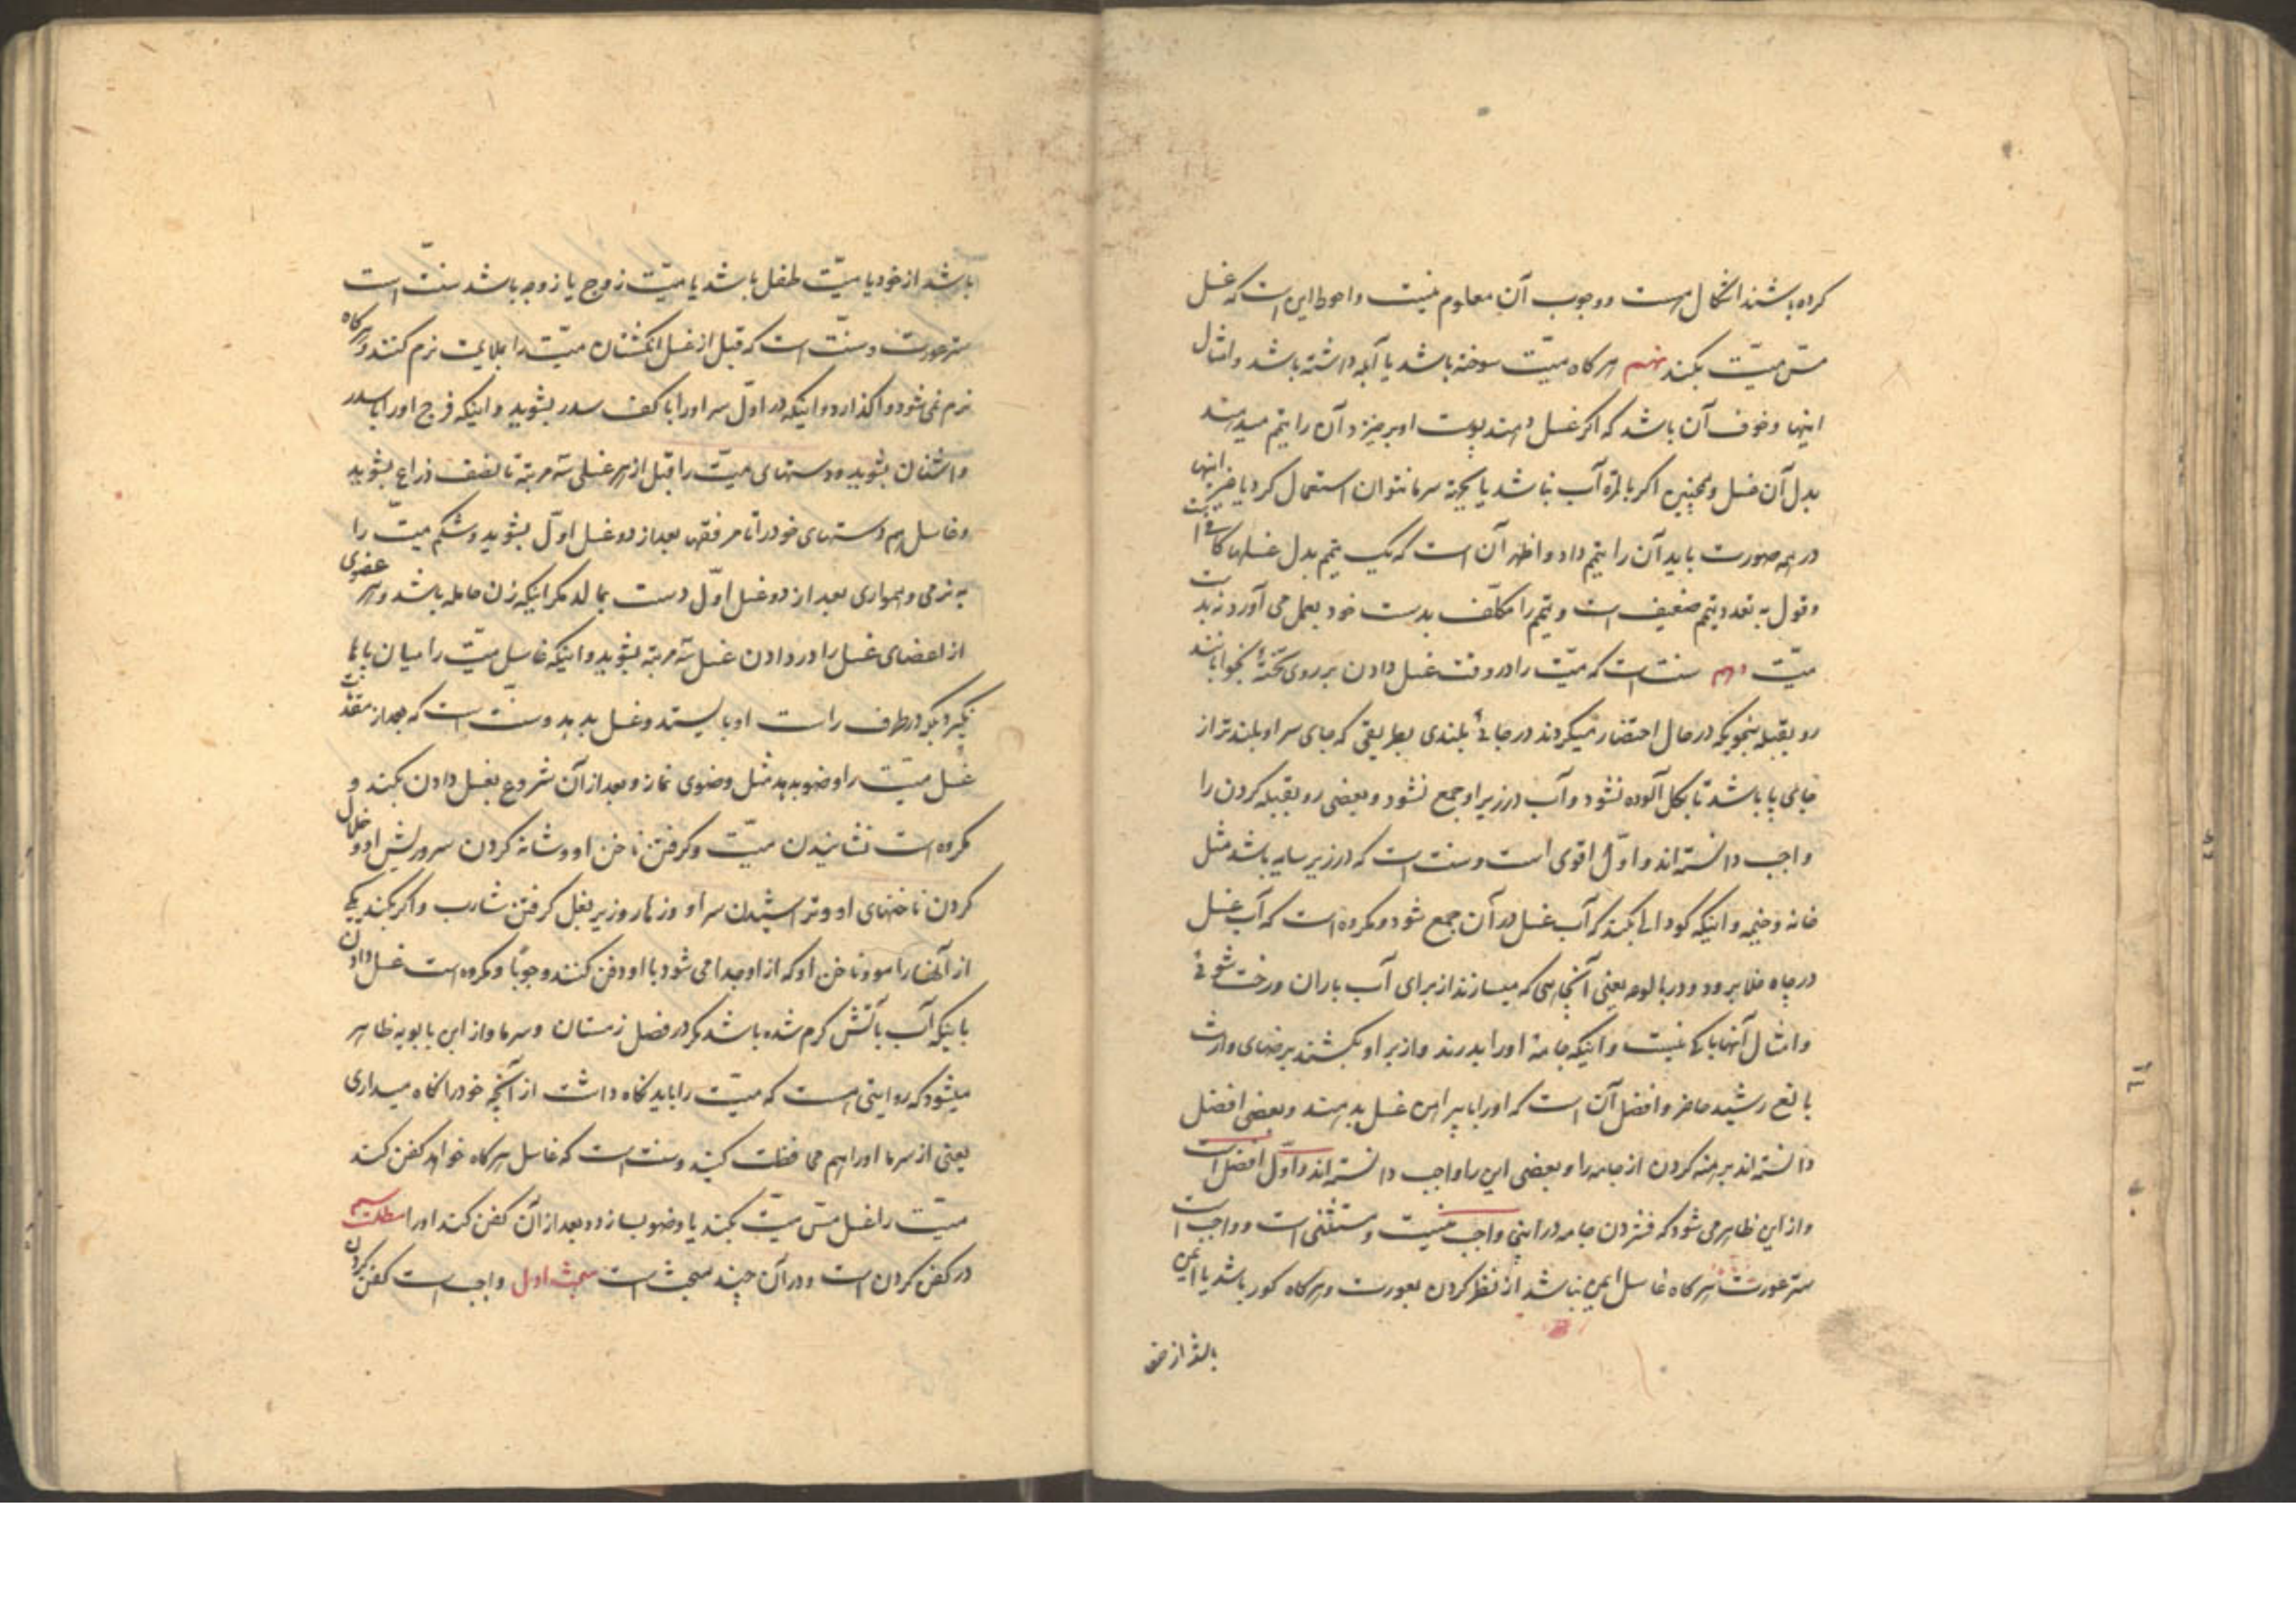 کرده باشند اشکال است و وجوب آن معلوم نیست و احوط این است که غسل
مسّ میّت بکند نهم هر کاه میّت سوخته باشد یا آبله داشته باشد و امثال
اینها و خوف آن باشد که اکر غسل دهند پوست او بریزد آن را تیمّم میدهند
بدل آن غسل و همچنین اکر بالمرّه آب نباشد یا بجهة سرما نتوان استعمال کرد یا غیر اینها
در همه صورت باید آن را تیمّم داد و اظهر آن است که یک تیمّم بدل غسلها کافی است
و قول به تعدد تیمّم ضعیف است و تیمّم را مکلّف بدست خود بعمل می آورد نه بدست
میّت دهم سنت است که میّت را در وقت غسل دادن بر روی تختهٔ بخوابانند
رو بقبله بنحویکه در حال احتضار میکردند در جائے بلندی بطریقی که جای سر او بلندتر از
جای پا باشد تا بکل آلوده نشود و آب در زیر او جمع نشود و بعضی رو بقبله کردن را
واجب دانسته اند و اوّل اقوی است و سنت است که در زیر سایه باشد مثل
خانه و خیمه و اینکه کودالے بکنند که آب غسل در آن جمع شود و مکروه است که آب غسل
در چاه خلا برود و در بالوعه یعنی آن چاهی که میسازند از برای آب باران و رخت شوئے
و امثال آنها باکے نیست و اینکه جامهٔ او را بدرند و از بر او بکشند برضای وارث
بالغ رشید حاضر و افضل آن است که او را با پیراهن غسل بدهند و بعضی افضل
دانسته اند برهنه کردن از جامه را و بعضی این را واجب دانسته اند و اوّل افضل است
و از این ظاهر می شود که فشردن جامه در اینجا واجب نیست و مستثنی است و واجب است
ستر عورت هر کاه غاسل ایمن نباشد از نظر کردن بعورت و هر کاه کور باشد یا ایمن
باشد از خود
باشد از خود یا میّت طفل باشد یا میّت زوج یا زوجه باشد سنّت است
ستر عورت و سنّت است که قبل از غسل انکشتان میّت را بملایمت نرم کنند و هر کاه
نرم نمی شود واکذارد و اینکه در اوّل سر او را با کف سدر بشوید و اینکه فرج او را با سدر
و اشنان بشوید و دستهای میّت را قبل از هر غسلی سه مرتبه تا نصف ذراع بشوید
و غاسل هم دستهای خود را تا مرفقها بعد از دو غسل اوّل بشوید و شکم میّت را
به نرمی و همواری بعد از دو غسل اوّل دست بمالد مکر اینکه زن حامله باشد و هر عضوی
از اعضای غسل را در دادن غسل سه مرتبه بشوید و اینکه غاسل میّت را میان پاها
نکیرد بلکه در طرف راست او بایستد و غسل بدهد و سنّت است که بعد از مقدّمات
غسل میّت را وضو بدهد مثل وضوی نماز و بعد از آن شروع بغسل دادن بکند و
مکروه است نشانیدن میّت و کرفتن ناخن او و شانه کردن سر و ریش او و خلال
کردن ناخنهای او و تراشیدن سر او و زهار و زیر بغل کرفتن شارب و اکر بکند یکے
از آنها را مو و ناخن او که از او جدا می شود با او دفن کنند وجوبًا و مکروه است غسل دادن
باینکه آب بآتش کرم شده باشد مکر در فصل زمستان و سرما و از ابن بابویه ظاهر
میشود که روایتی هست که میّت را باید نکاه داشت از آنچه خود را نکاه میداری
یعنی از سرما او را هم محافظت کنید و سنت است که غاسل هر کاه خواهد کفن کند
میّت را غسل مسّ میّت بکند یا وضو بسازد و بعد از آن کفن کند او را مطلب سیم
در کفن کردن است و در آن چند مبحث است مبحث اول واجب است کفن کردن